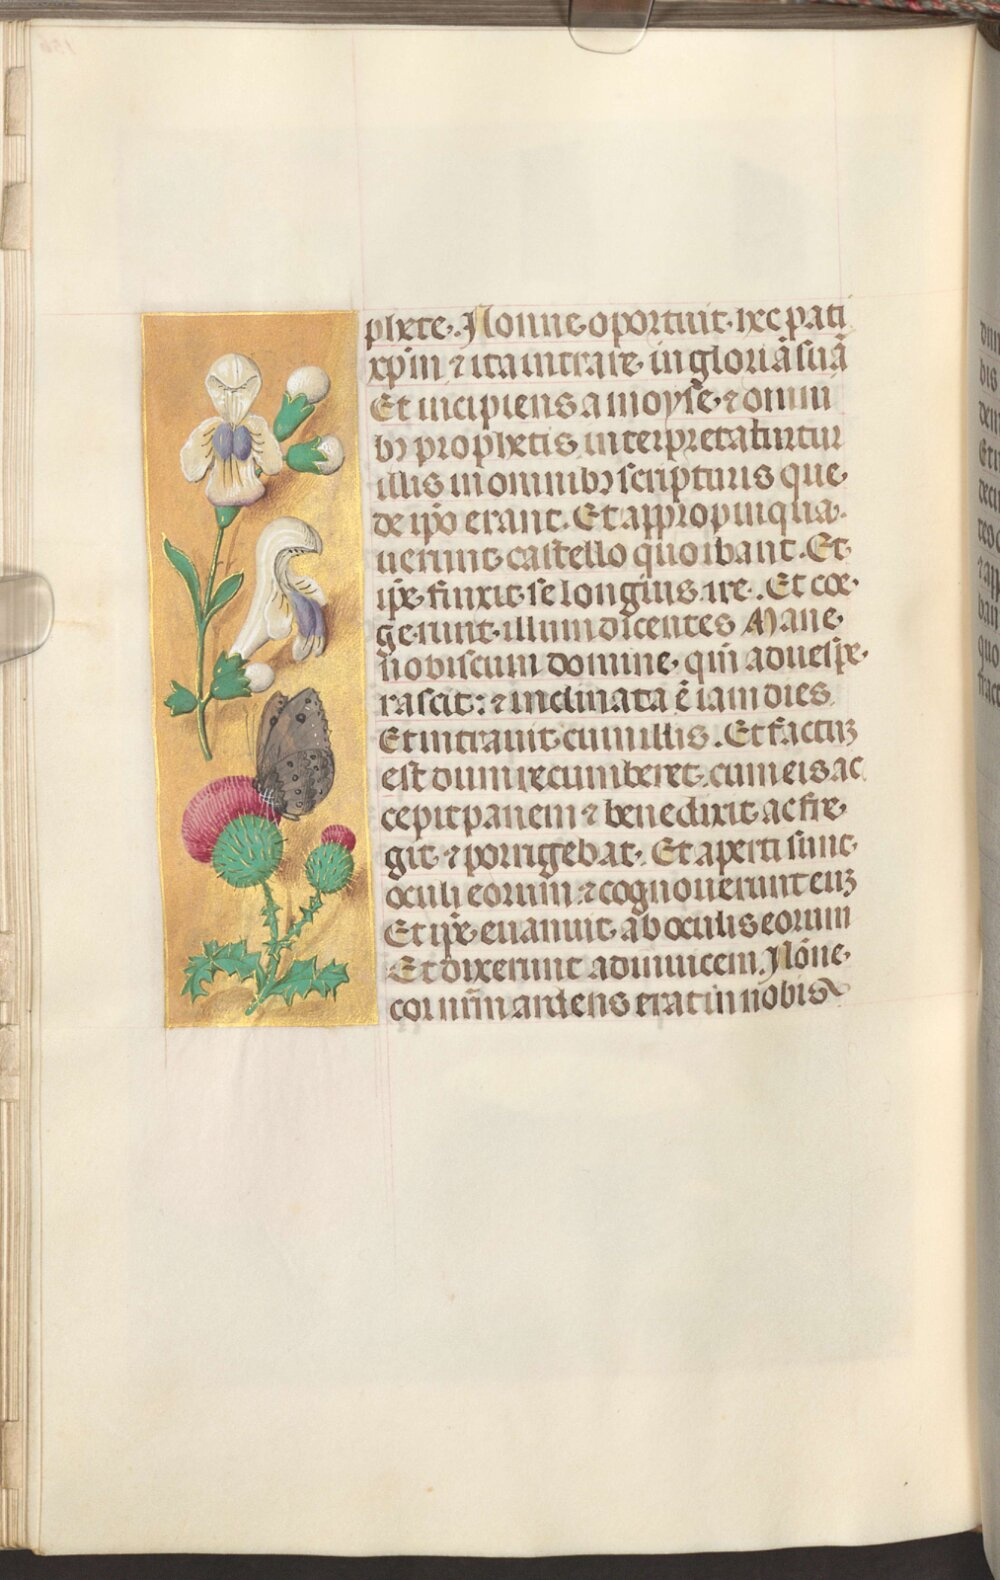 phete. Nonne oportuit hec pati
xp̄m ⁊ ita intrare in gloriā suā
Et incipiens a moyse ⁊ omni
bꝫ prophetis interpretabatur
illis in omnibꝫ scripturis que
de ip̄o erant. Et appropinqua
uerunt castello quo ibant. Et
ip̄e finxit se longius ire. Et coe
gerunt illum dicentes Mane
nobiscum domine qm̄ aduespe
rascit: ⁊ inclinata ē iam dies
Et intrauit cum illis. Et factuꝫ
est dum recumberet cum eis ac
cepit panem ⁊ benedixit ac fre
git ⁊ porrigebat. Et aperti sunt
oculi eorum ⁊ cognouerunt euꝫ
Et ip̄e euanuit ab oculis eorum
Et dixerunt adinuicem. Nōne
cor nr̄m ardens erat in nobis